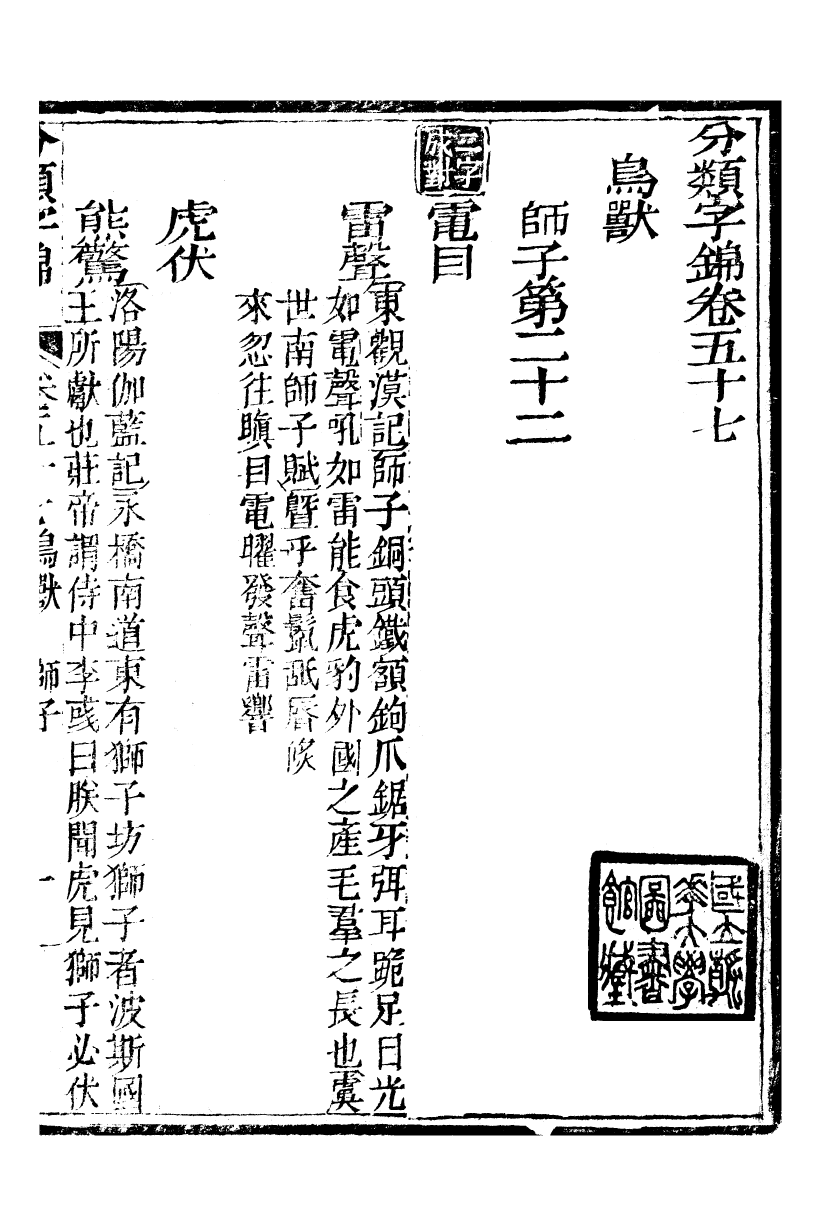 分類字錦卷五十七
鳥獸
師子第二十二
二字成對
電目
雷聲
東觀漢記師子銅頭鐵額鉤爪鋸牙弭耳跪足目光
如電聲吼如雷能食虎豹外國之產毛羣之長也虞
世南師子賦瞖乎奮鬛舐脣倐
來忽往瞋目電曜發聲雷響
虎伏
熊驚
洛陽伽藍記永橋南道東有獅子坊獅子者波斯國
王所獻也莊帝謂侍中李彧曰朕聞虎見獅子必伏
分類字錦 卷五十七鳥獸 師子 一
國立清華大學圖書館藏